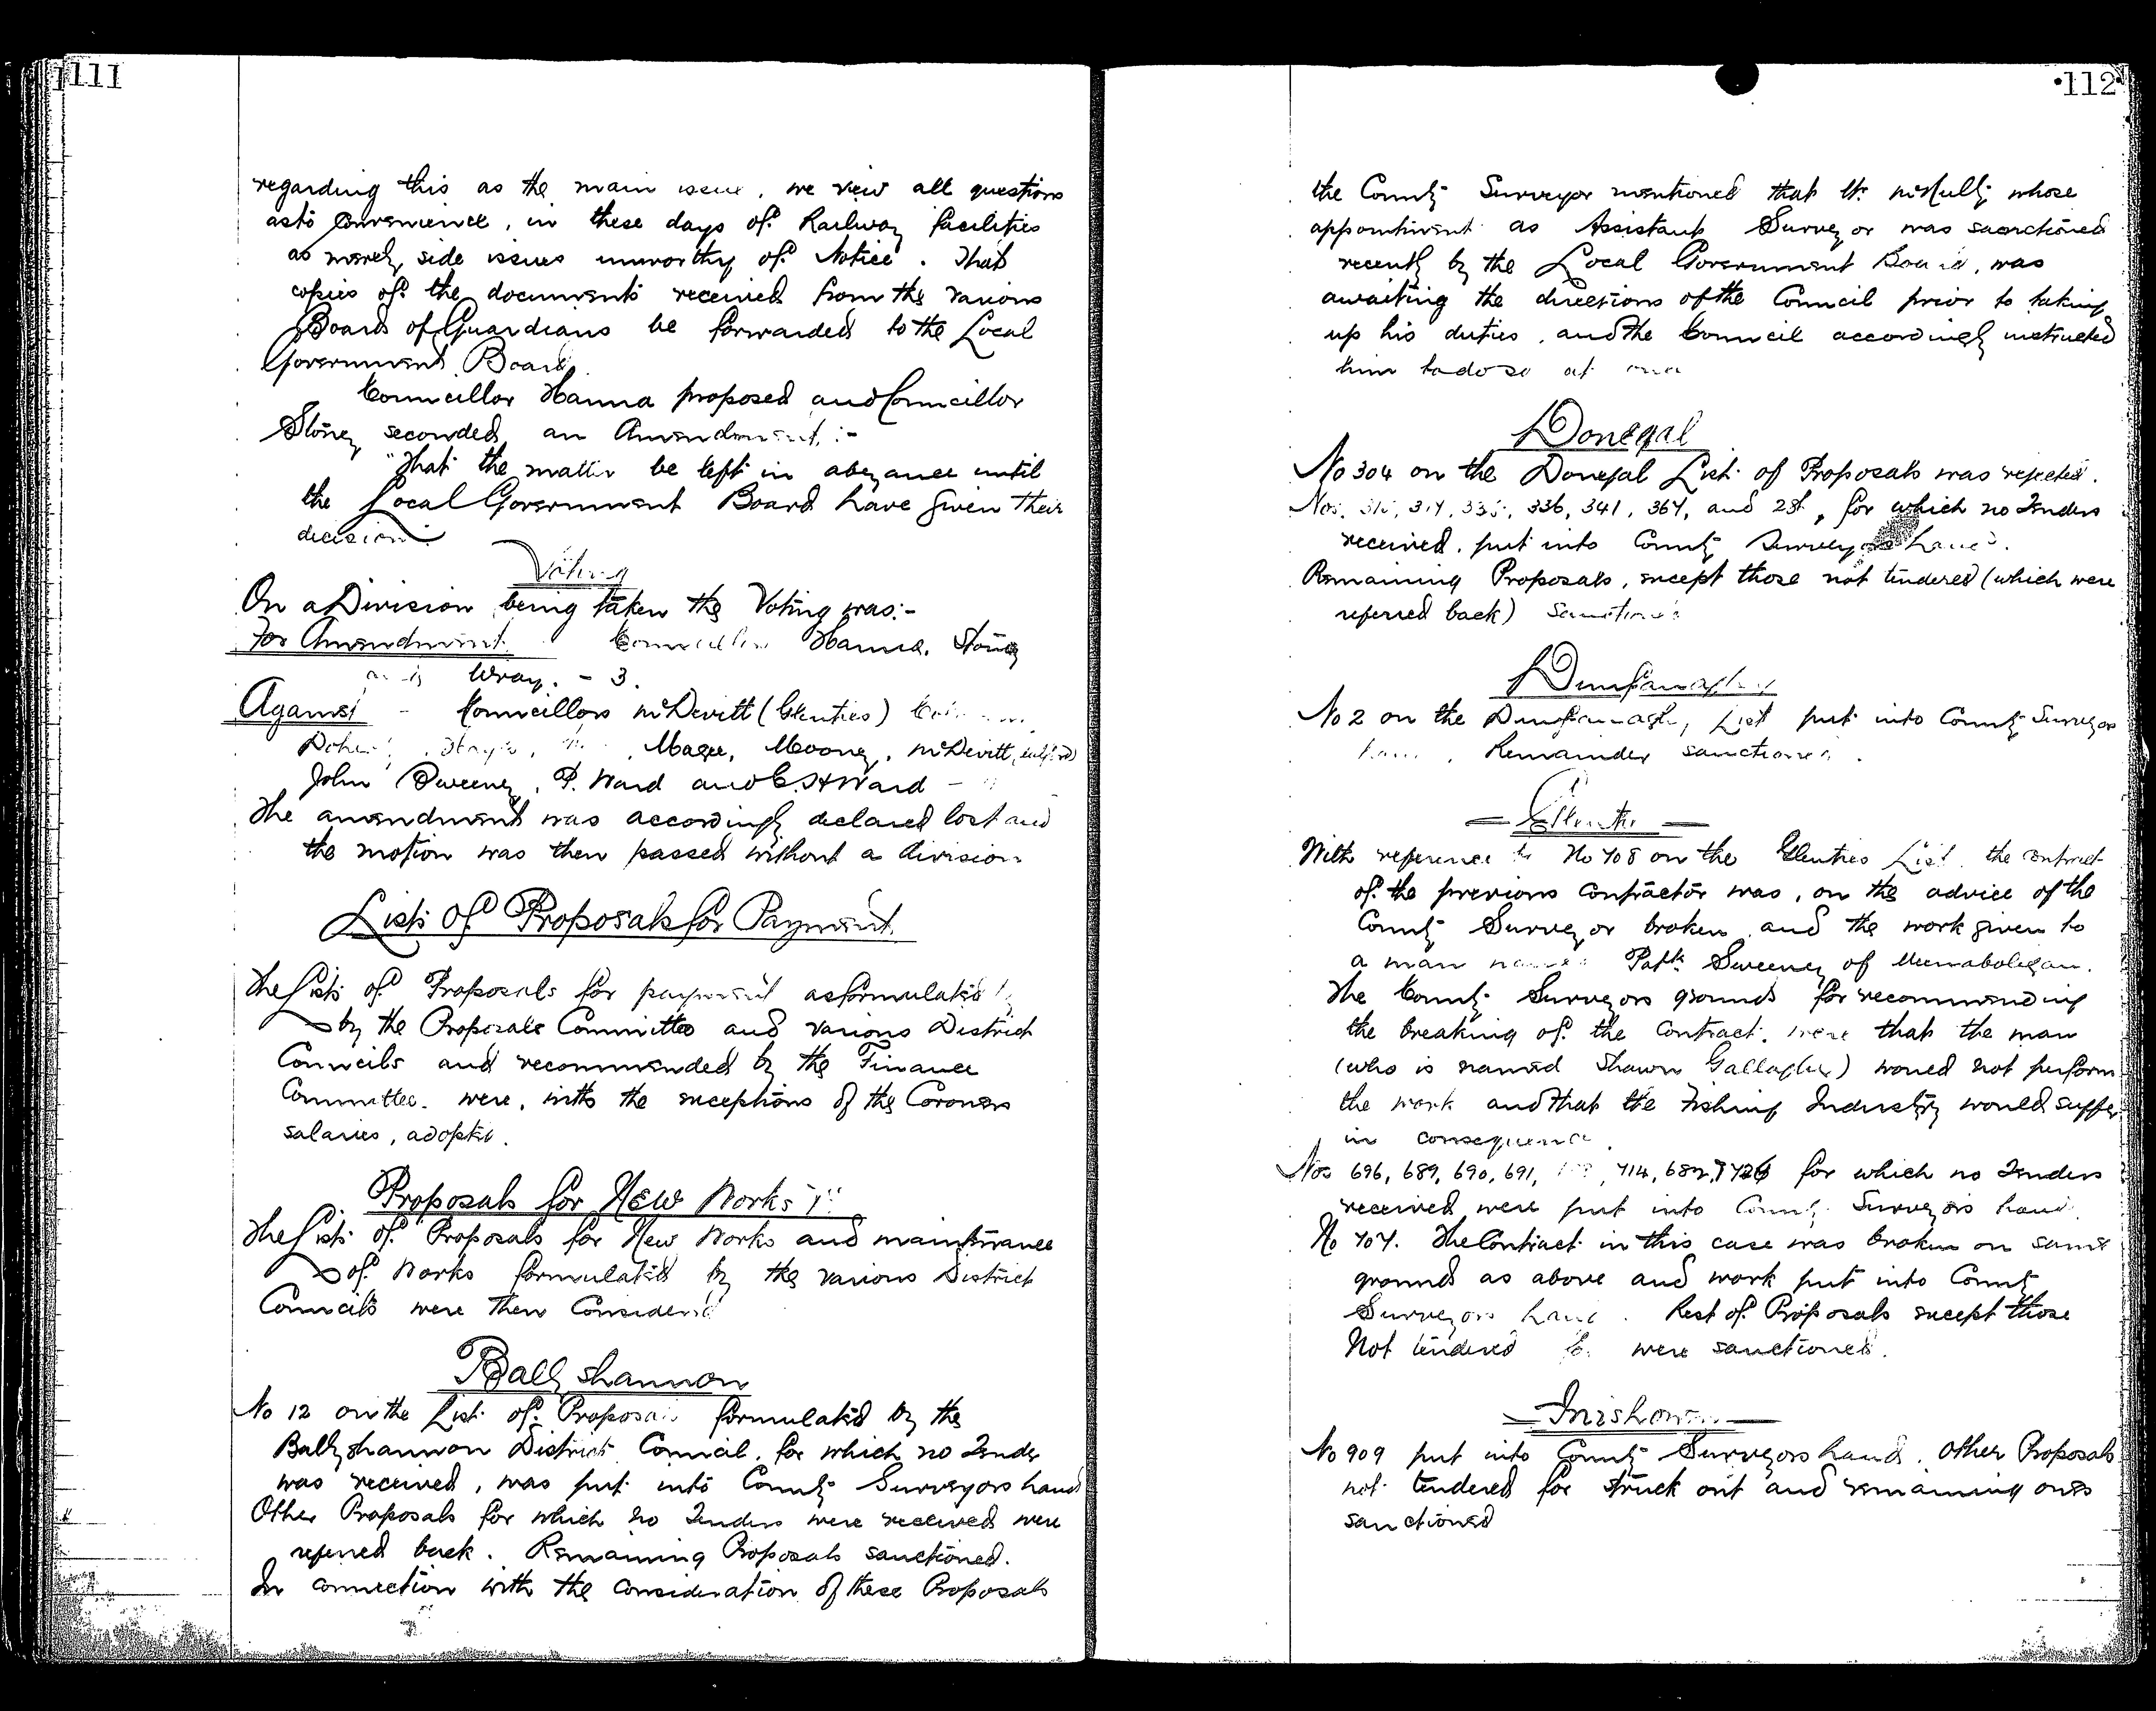 111
regarding this as the main issue, we view all questions
as to convenience, in these days of Railway facilities
as merely side issues unworthy of Notice. That
copies of the documents received from the various
Boards of Guardians be forwarded to the Local
Government Board.
Councillor Hanna proposed and Councillor
Stoney seconded an Amendment :-
"That the matter be left in abeyance until
the Local Government Board have given their
decision.
Voting
On a Division being taken the Voting was:-
For Amendment Councillors Hanna, Stoney
and Wray. - 3.
Against - Councillors McDevitt (Glenties)
Magee, Mooney, McDevitt,
John Sweeney, P. Ward and C. H Ward -
The amendment was accordingly declared lost and
the motion was then passed without a division
Lists of Proposals for Payment
The Lists of Proposals for payment as formulated by
by the Proposals Committee and various District
Councils and recommended by the Finance
Committee. were, with the exceptions of the Coroners
salaries, adopted.
Proposals for New Works
The Lists of Proposals for New Works and maintenance
of Works formulated by the various District
Councils were then Considered
Ballyshannon
No 12 on the List of Proposals formulated by the
Ballyshannon District Council, for which no Tender
was received, was put into County Surveyors hands
Other Proposals for which no Tenders were received were
referred back. Remaining Proposals sanctioned.
In connection with the consideration of these Proposals
112
the County Surveyor mentioned that Mr. McNulty whose
appointment as Assistant Surveyor was sanctioned
recently by the Local Government Board, was
awaiting the directions of the Council prior to taking
up his duties, and the Council accordingly instructed
him to do so at once
Donegal
No 304 on the Donegal List of Proposals was rejected.
Nos. 336, 341, 364, and for which no Tenders
received, put into County Surveyors hands.
Remaining Proposals, except those not tendered (which were
referred back) Sanctioned
Dunfanaghy
No 2 on the Dunfanaghy List put into County Surveyors
hands. Remainder sanctioned.
Glenties
With reference to No 708 on the Glenties List, the contract
of the previous contractor was, on the advice of the
County Surveyor broken and the work given to
a man named Patk Sweeney of Meenabolegan.
The County Surveyors grounds for recommending
the breaking of the Contract, were that the man
(who is named Shawn Gallagher) would not perform
the work and that the Fishing Industry would suffer
in consequence.
Nos 696, 689, 690, 691, 714, 682, for which no Tenders
received were put into County Surveyors hands
No 704. The Contract in this case was broken on same
grounds as above and work put into County
Surveyors hands. Rest of Proposals except those
Not tendered were sanctioned.
Inishowen
No 909 put into County Surveyors hands. Other Proposals
not tendered for struck out and remaining ones
sanctioned